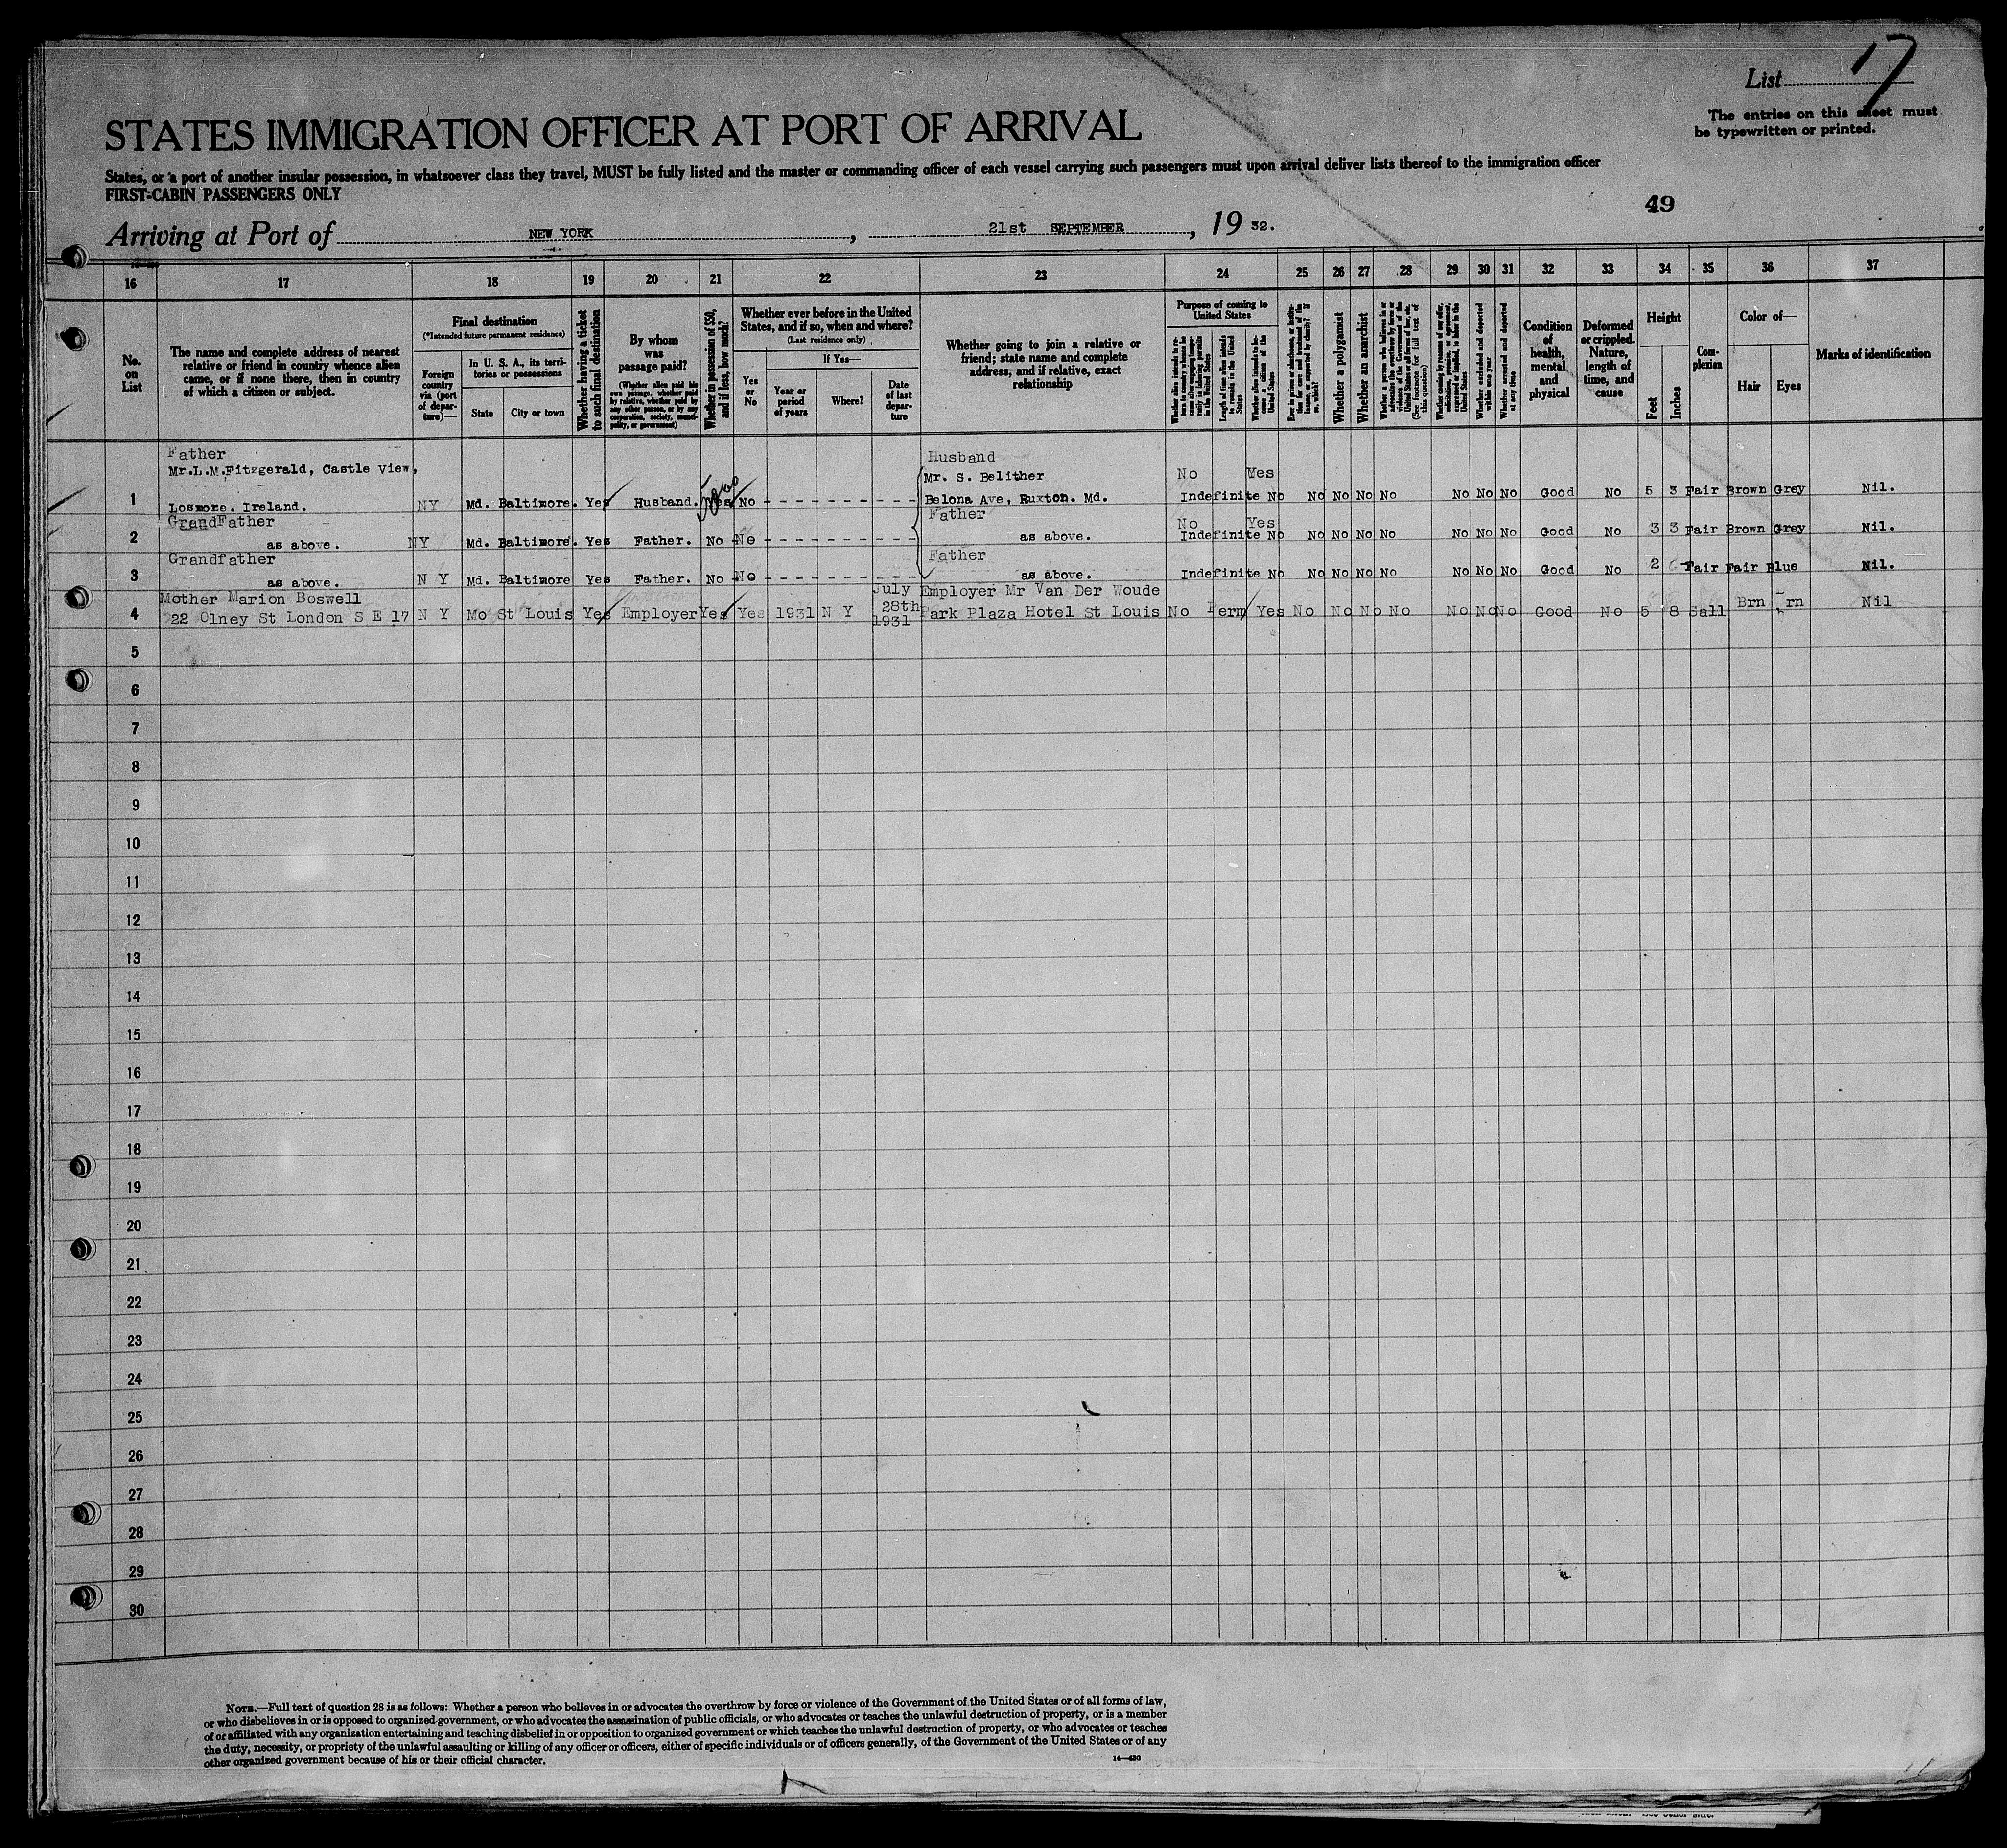 List 17
The entries on this sheet must
be typewritten or printed.
STATES IMMIGRATION OFFICER AT PORT OF ARRIVAL
States, or a port of another insular possession, in whatsoever class they travel, MUST be fully listed and the master or commanding officer of each vessel carrying such passengers must upon arrival deliver lists thereof to the immigration officer
FIRST-CABIN PASSENGERS ONLY
49
Arriving at Port of NEW YORK, 21st SEPTEMBER, 19 32.
16 17 18 19 20 21 22 23 24 25 26 27 28 29 30 31 32 33 34 35 36 37
No.
on
List
The name and complete address of nearest
relative or friend in country whence alien
came, or if none there, then in country
of which a citizen or subject.
Final destination
(*Intended future permanent residence)
Foreign
country
via (port
of depar-
ture)—
In U. S. A., its terri-
tories or possessions
State
City or town
Whether having a ticket
to such final destination
By whom
was
passage paid?
(Whether alien paid his
own passage, whether paid
by relative, whether paid by
any other person, or by any
corporation, society, munici-
pality, or government)
Whether in possession of $50,
and if less, how much?
Whether ever before in the United
States, and if so, when and where?
(Last residence only)
Yes
or
No
If Yes—
Year or
period
of years
Where?
Date
of last
depar-
ture
Whether going to join a relative or
friend; state name and complete
address, and if relative, exact
relationship
Purpose of coming to
United States
Whether alien intends to re-
turn to country whence he
came after engaging tempo-
rarily in laboring pursuits
in the United States
Length of time alien intends
to remain in the United
States
Whether alien intends to be-
come a citizen of the
United States
Ever in prison or almshouse, or institu-
tion for care and treatment of the
insane, or supported by charity? If
so, which?
Whether a polygamist
Whether an anarchist
Whether a person who believes in or
advocates the overthrow by force or
violence of the Government of the
United States or all forms of law, etc.
(See footnote for full text of
this question)
Whether coming by reason of any offer,
solicitation, promise, or agreement,
expressed or implied, to labor in the
United States
Whether excluded and deported
within one year
Whether arrested and deported
at any time
Condition
of
health,
mental
and
physical
Deformed
or crippled.
Nature,
length of
time, and
cause
Height
Feet
Inches
Com-
plexion
Color of—
Hair
Eyes
Marks of identification
Father Husband
Mr.L.M.Fitzgerald, Castle View, Mr. S. Belither No Yes
1 Losmore. Ireland. NY Md. Baltimore. Yes Husband. Yes No Belona Ave, Ruxton. Md. Indefinite No No No No No No No No Good No 5 3 Fair Brown Grey Nil.
GrandFather Father No Yes
2 as above. NY Md. Baltimore. Yes Father. No No as above. Indefinite No No No No No No No No Good No 3 3 Fair Brown Grey Nil.
Grandfather Father
3 as above. N Y Md. Baltimore Yes Father. No No as above. Indefinite No No No No No No No No Good No 2 Fair Fair Blue Nil.
Mother Marion Boswell July Employer Mr Van Der Woude
4 22 Olney St London S E 17 N Y Mo St Louis Yes Employer Yes Yes 1931 N Y 28th 1931 Park Plaza Hotel St Louis No Perm Yes No No No No No No No Good No 5 8 Sall Brn rn Nil
5
6
7
8
9
10
11
12
13
14
15
16
17
18
19
20
21
22
23
24
25
26
27
28
29
30
NOTE.—Full text of question 28 is as follows: Whether a person who believes in or advocates the overthrow by force or violence of the Government of the United States or of all forms of law,
or who disbelieves in or is opposed to organized government, or who advocates the assassination of public officials, or who advocates or teaches the unlawful destruction of property, or is a member
of or affiliated with any organization entertaining and teaching disbelief in or opposition to organized government or which teaches the unlawful destruction of property, or who advocates or teaches
the duty, necessity, or propriety of the unlawful assaulting or killing of any officer or officers, either of specific individuals or of officers generally, of the Government of the United States or of any
other organized government because of his or their official character.
14—430